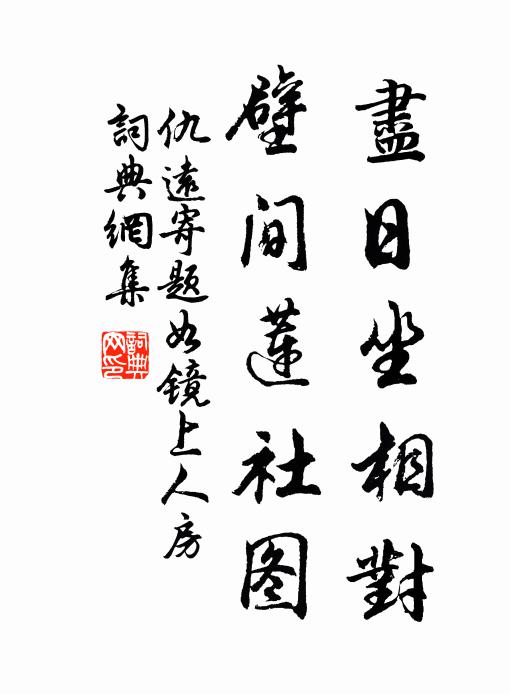 盡日坐相對
壁间蓮社图
仇遠寄題如鏡上人房
詞典網集
詞典网印